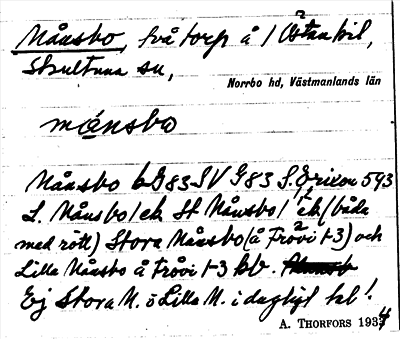 Månsbo, två torp å / Östanbil,
Skultuna sn,
Norrbo hd, Västmanlands län
månsbo
Månsbo bG83SV G83 S. Erixon 593
L. Månsbo / ek St Månsbo / ek (båda
med rött) Stora Månsbo (å Fröv 1-3) och
Lilla Månsbo å Frövi 1-3 kb.
Ej Stora M. o Lilla M. i dagligt tal!
A. THORFORS 1934